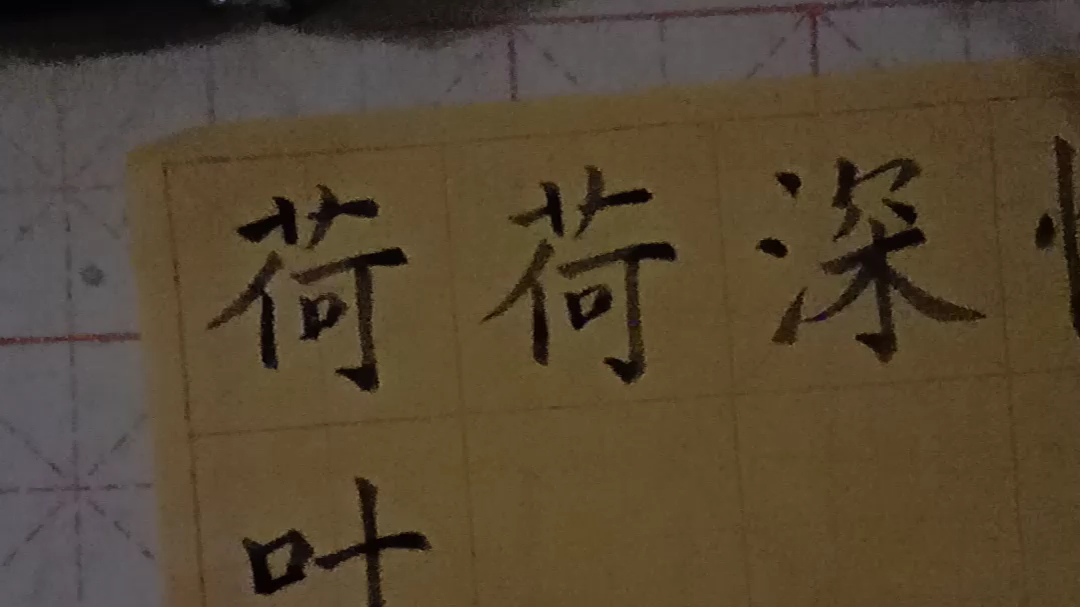 荷荷深
叶